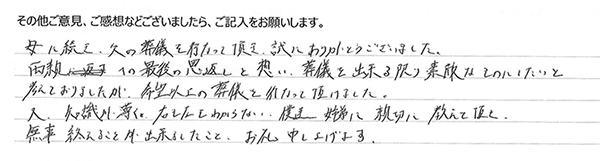 その他ご意見、ご感想などございましたら、ご記入をお願いします。
母に続き、父の葬儀を行なって頂き、誠にありがとうございました。
両親への最後の恩返しと想い、葬儀を出来る限り素敵なものにしたいと
考えておりましたが、希望以上の葬儀を行なって頂けました。
又、知識が薄く、右も左もわからない、僕達 姉弟に 親切に 教えて頂き、
無事 終えることが出来ましたこと、お礼 申し上げます。